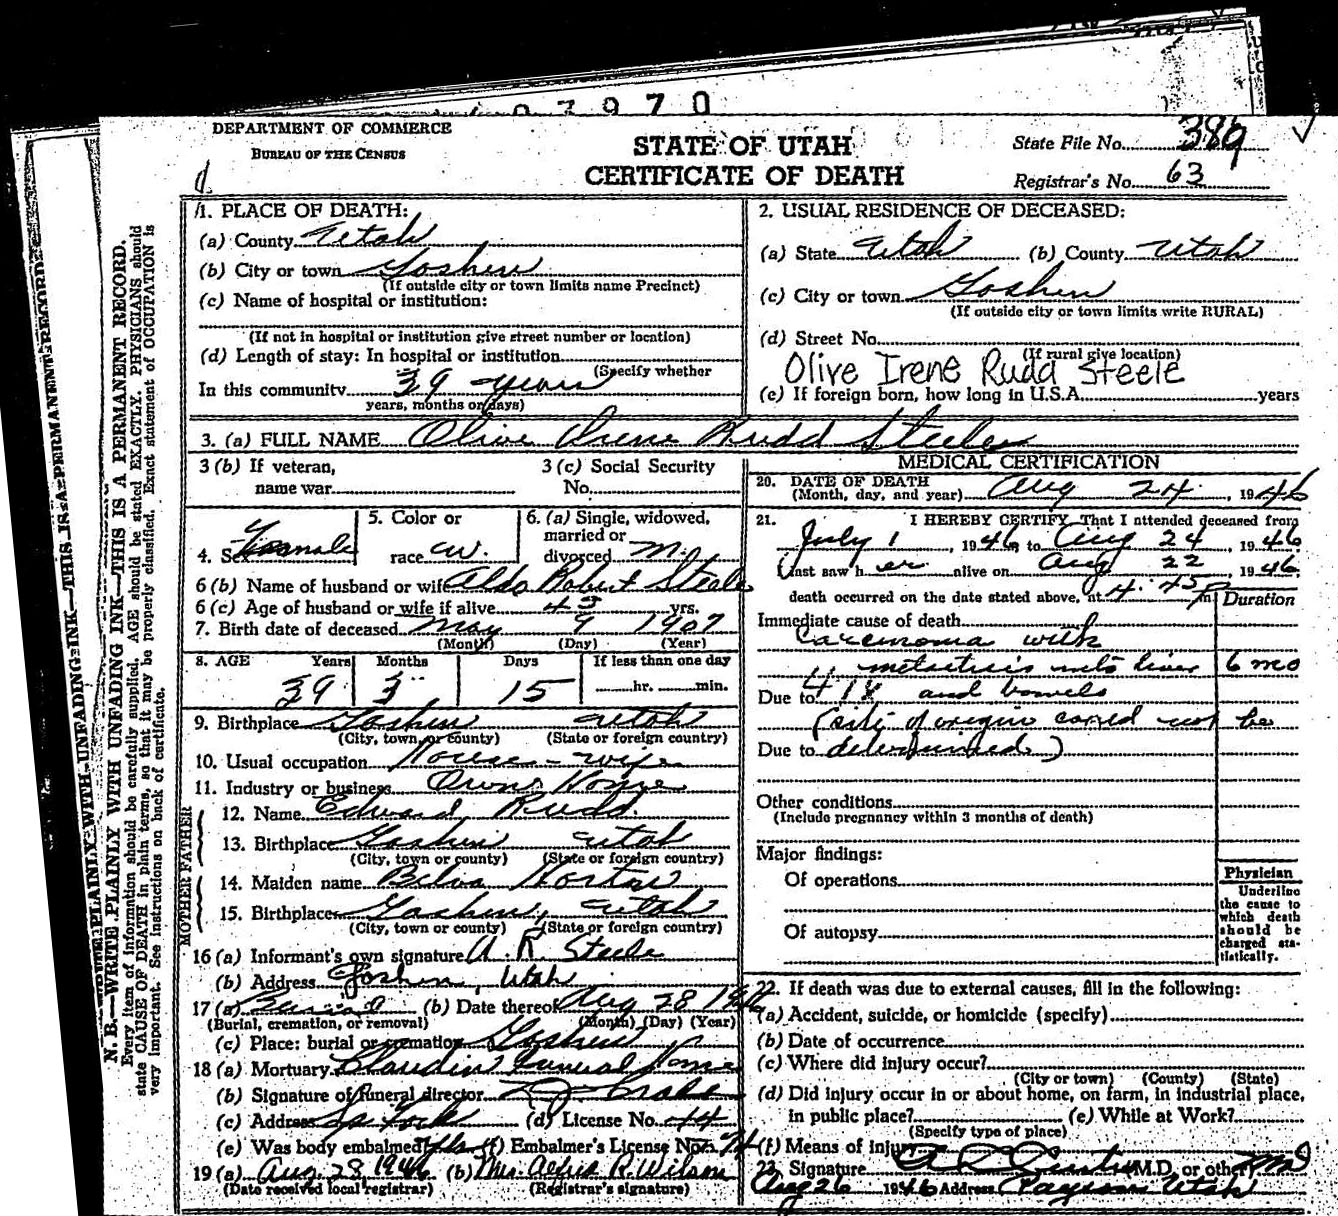 0 3 9 7 0
DEPARTMENT OF COMMERCE
BUREAU OF THE CENSUS
STATE OF UTAH
CERTIFICATE OF DEATH
State File No. 389
Registrar's No. 63
N. B.—WRITE PLAINLY WITH UNFADING INK—THIS IS A PERMANENT RECORD.
Every item of information should be carefully supplied. AGE should be stated EXACTLY. PHYSICIANS should
state CAUSE OF DEATH in plain terms, so that it may be properly classified. Exact statement of OCCUPATION is
very important. See instructions on back of certificate.
1. PLACE OF DEATH:
(a) County Utah
(b) City or town Goshen
(If outside city or town limits name Precinct)
(c) Name of hospital or institution:
(If not in hospital or institution give street number or location)
(d) Length of stay: In hospital or institution
(Specify whether
In this community 39 years
years, months or days)
2. USUAL RESIDENCE OF DECEASED:
(a) State Utah (b) County Utah
(c) City or town Goshen
(If outside city or town limits write RURAL)
(d) Street No.
(If rural give location)
Olive Irene Rudd Steele
(e) If foreign born, how long in U.S.A. years
3. (a) FULL NAME Olive Irene Rudd Steele
3 (b) If veteran,
name war
3 (c) Social Security
No.
4. Sex Female
5. Color or
race W.
6. (a) Single, widowed,
married or
divorced M.
6 (b) Name of husband or wife Aldo Robert Steele
6 (c) Age of husband or wife if alive 43 yrs.
7. Birth date of deceased May 9 1907
(Month) (Day) (Year)
8. AGE Years Months Days If less than one day
39 3 15 hr. min.
9. Birthplace Goshen Utah
(City, town, or county) (State or foreign country)
10. Usual occupation House-wife
11. Industry or business Own Home
FATHER
12. Name Edward Rudd
13. Birthplace Goshen Utah
(City, town or county) (State or foreign country)
MOTHER
14. Maiden name Belva Horton
15. Birthplace Goshen, Utah
(City, town or county) (State or foreign country)
16 (a) Informant's own signature A. R. Steele
(b) Address Goshen, Utah
17 (a) Burial (b) Date thereof Aug 28 1946
(Burial, cremation, or removal) (Month) (Day) (Year)
(c) Place: burial or cremation Goshen
18 (a) Mortuary Claudin Funeral Home
(b) Signature of funeral director
(c) Address Sp Fork (d) License No. 44
(e) Was body embalmed? Yes (f) Embalmer's License No.
19 (a) Aug 28 1946 (b) Mrs. R. Wilson
(Date received local registrar) (Registrar's signature)
MEDICAL CERTIFICATION
20. DATE OF DEATH
(Month, day, and year) Aug 24, 1946
21. I HEREBY CERTIFY That I attended deceased from
July 1, 1946, to Aug 24 1946
Last saw her alive on Aug 22 1946,
death occurred on the date stated above, at 4:45 p m
Duration
Immediate cause of death
Carcinoma with
metastisis into liver 6 mo
Due to and bowels
(site of origin could not be
Due to determined)
Other conditions
(Include pregnancy within 3 months of death)
Major findings:
Of operations
Of autopsy
Physician
Underline
the cause to
which death
should be
charged sta-
tistically.
22. If death was due to external causes, fill in the following:
(a) Accident, suicide, or homicide (specify)
(b) Date of occurrence
(c) Where did injury occur?
(City or town) (County) (State)
(d) Did injury occur in or about home, on farm, in industrial place,
in public place? (e) While at Work?
(Specify type of place)
(f) Means of injury
23. Signature M.D. or other MD
Aug 26 1946 Address Payson Utah